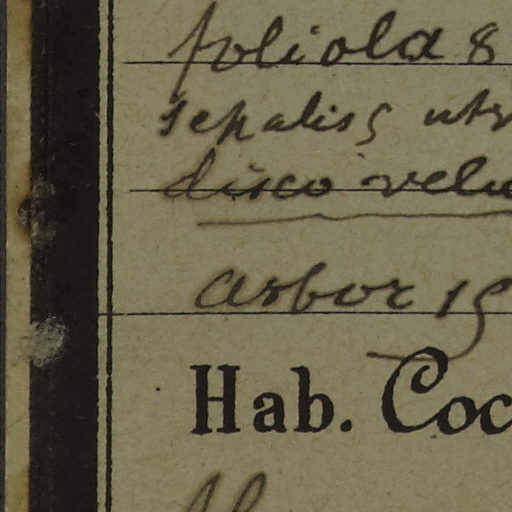 foliola 8
sepalis 5 utr
disco velu
arbor 15
Hab. Coc